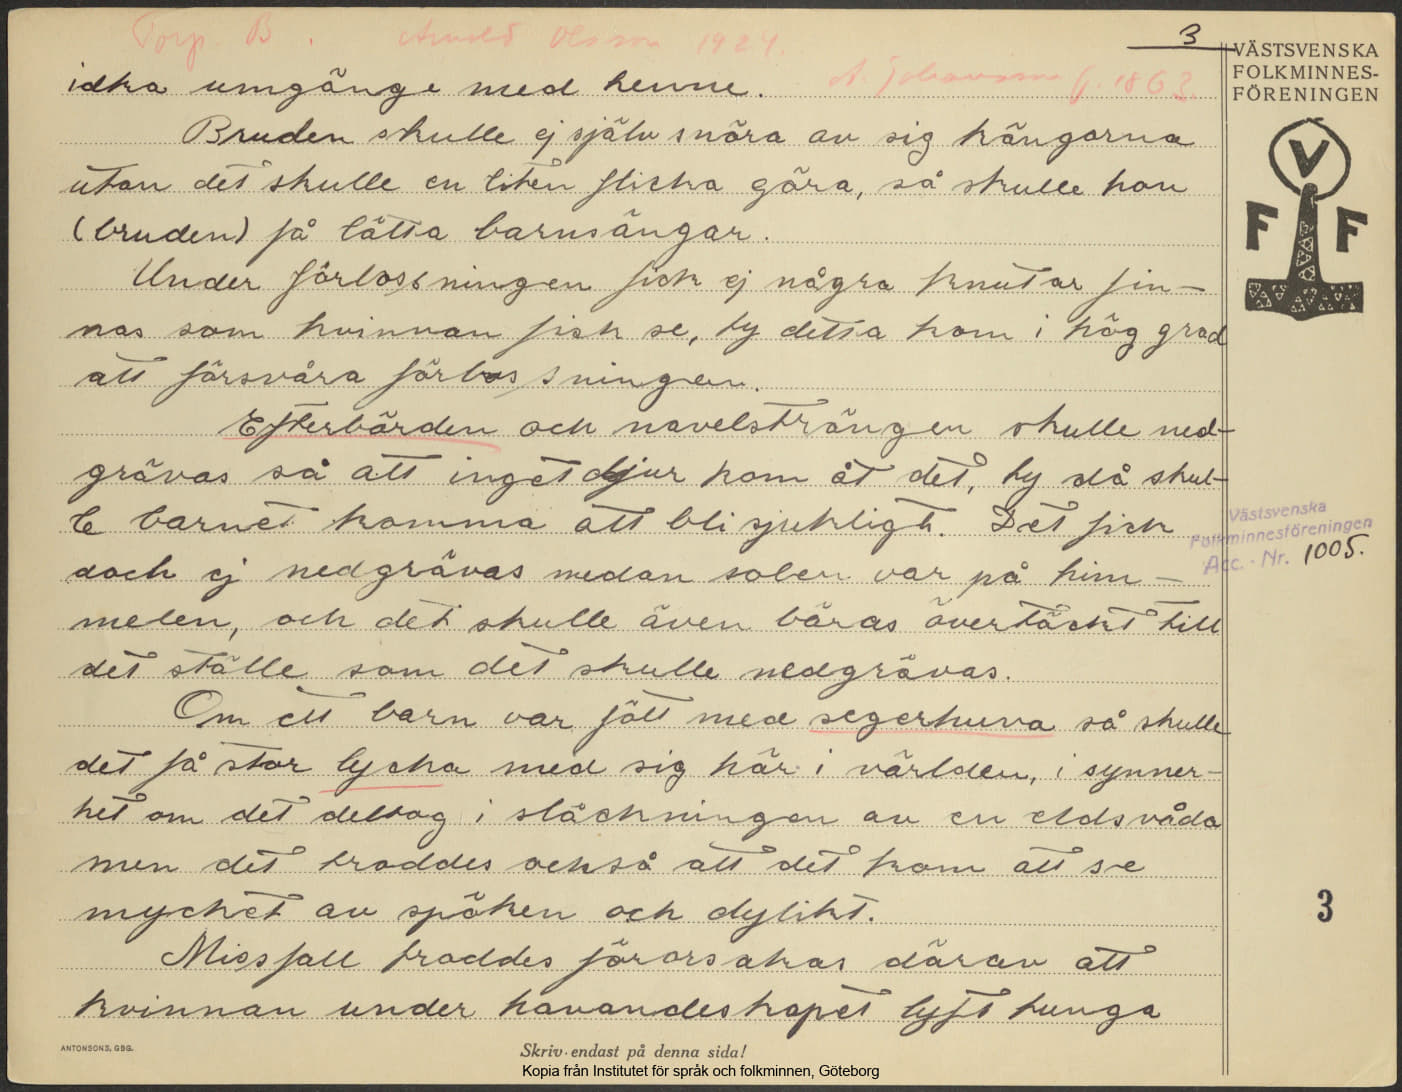 Torp B. Arnold Olsson 1924.
3
A. Johansson f. 1863.
VÄSTSVENSKA
FOLKMINNES-
FÖRENINGEN
V
F F
idka umgänge med henne.
Bruden skulle ej själv snöra av sig kängorna
utan det skulle en liten flicka göra, så skulle hon
(bruden) få lätta barnsängar.
Under förlossningen fick ej några knutar fin-
nas som kvinnan fick se, ty detta kom i hög grad
att försvåra förlossningen.
Efterbörden och navelsträngen skulle ned-
grävas så att inget djur kom åt det, ty då skul-
le barnet komma att bli sjukligt. Det fick
dock ej nedgrävas medan solen var på him-
melen, och det skulle även bäras övertäckt till
det ställe som det skulle nedgrävas.
Om ett barn var fött med segerhuva så skulle
det få stor lycka med sig här i världen, i synner-
het om det deltog i släckningen av en eldsvåda
men det troddes också att det kom att se
mycket av spöken och dylikt.
Missfall troddes förorsakas därav att
kvinnan under havandeskapet lyft tunga
Västsvenska
Folkminnesföreningen
Acc. - Nr. 1005.
3
ANTONSONS, GBG.
Skriv endast på denna sida!
Kopia från Institutet för språk och folkminnen, Göteborg